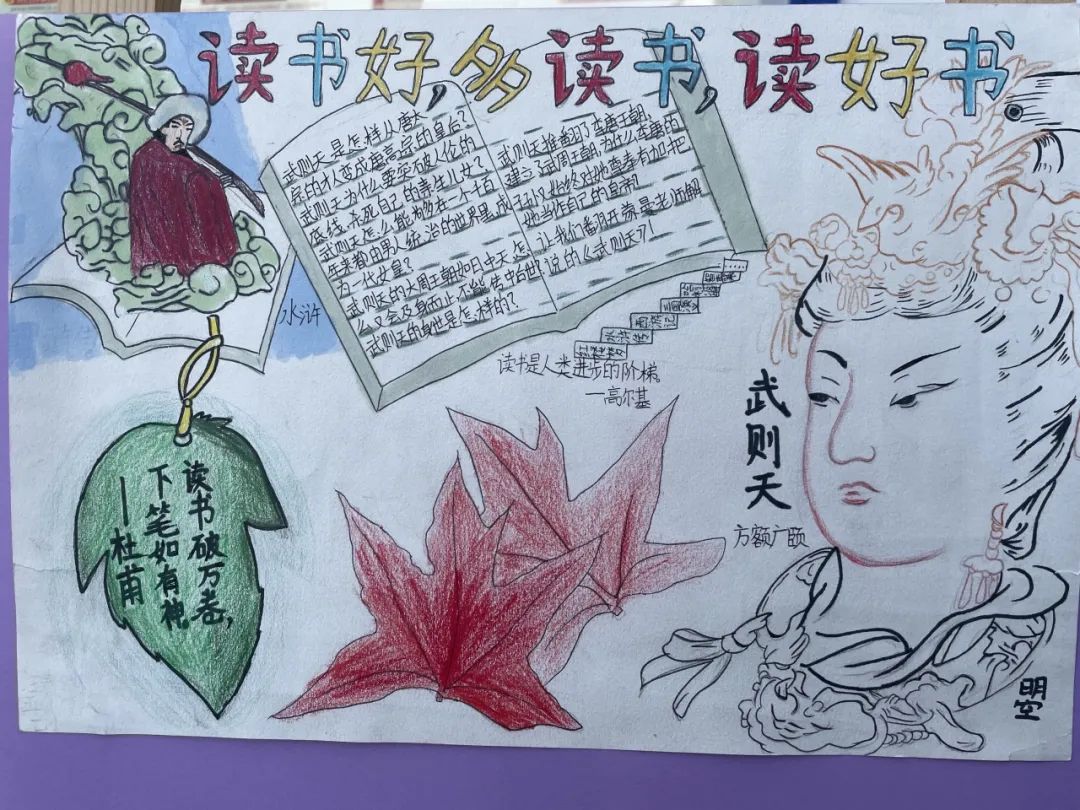 读书好,多读书,读好书
武则天是怎样从唐太
宗的才人变成唐高宗的皇后?
武则天为什么要突破人伦的
底线,杀死自己的亲生儿女?
武则天怎么能够在一个千百
年来都由男人统治的世界里,成
为一代女皇?
武则天的大周王朝如日中天,怎
么又会及身而止,不能传中后世?
武则天的身世是怎样的?
武则天推翻了李唐王朝,
建立了武周王朝,为什么李唐的
子孙却始终对她尊孝有加,把
她当作自己的自豪?
让我们翻开蒙曼老师解
说的《武则天》!
水浒
读书是人类进步的阶梯。
—高尔基
读书破万卷,
下笔如有神。
—杜甫
武则天
方额广颐
曌